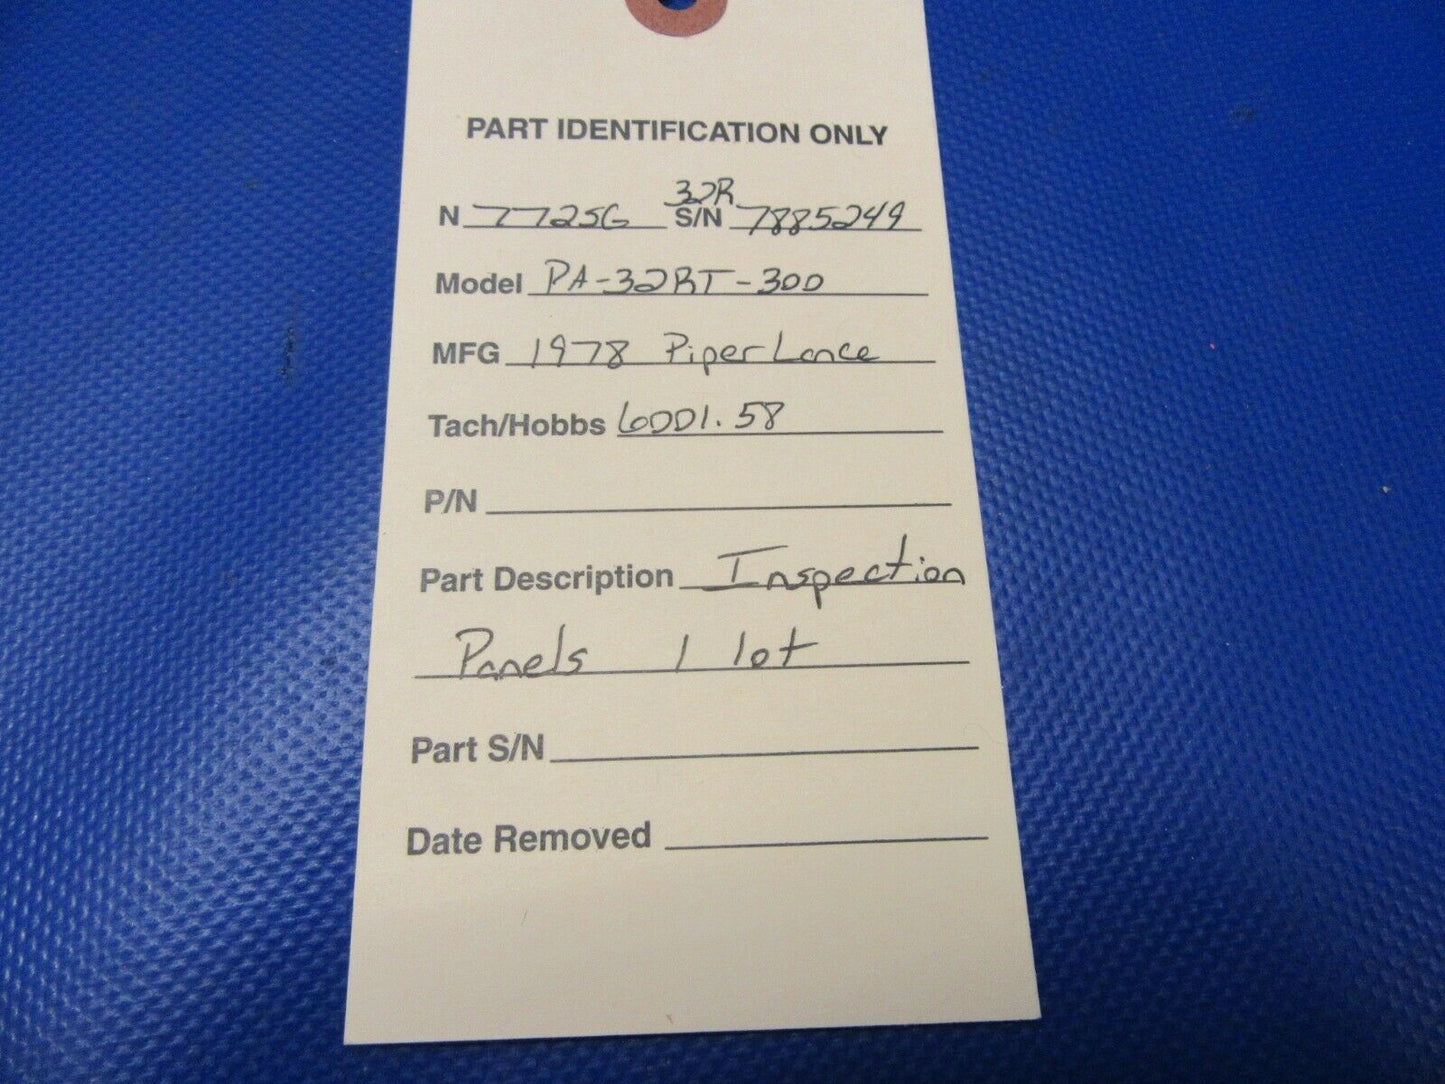 PART IDENTIFICATION ONLY
32R
N 7725G S/N 7885249
Model PA-32RT-300
MFG 1978 Piper Lance
Tach/Hobbs 6001.58
P/N
Part Description Inspection
Panels 1 lot
Part S/N
Date Removed